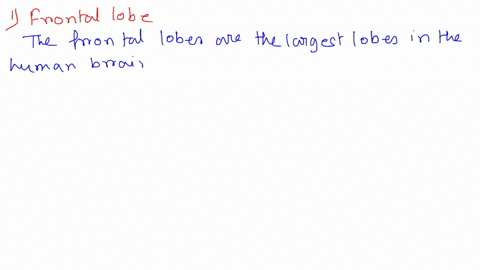 1) Frontal lobe
The frontal lobes are the largest lobes in the
human brain